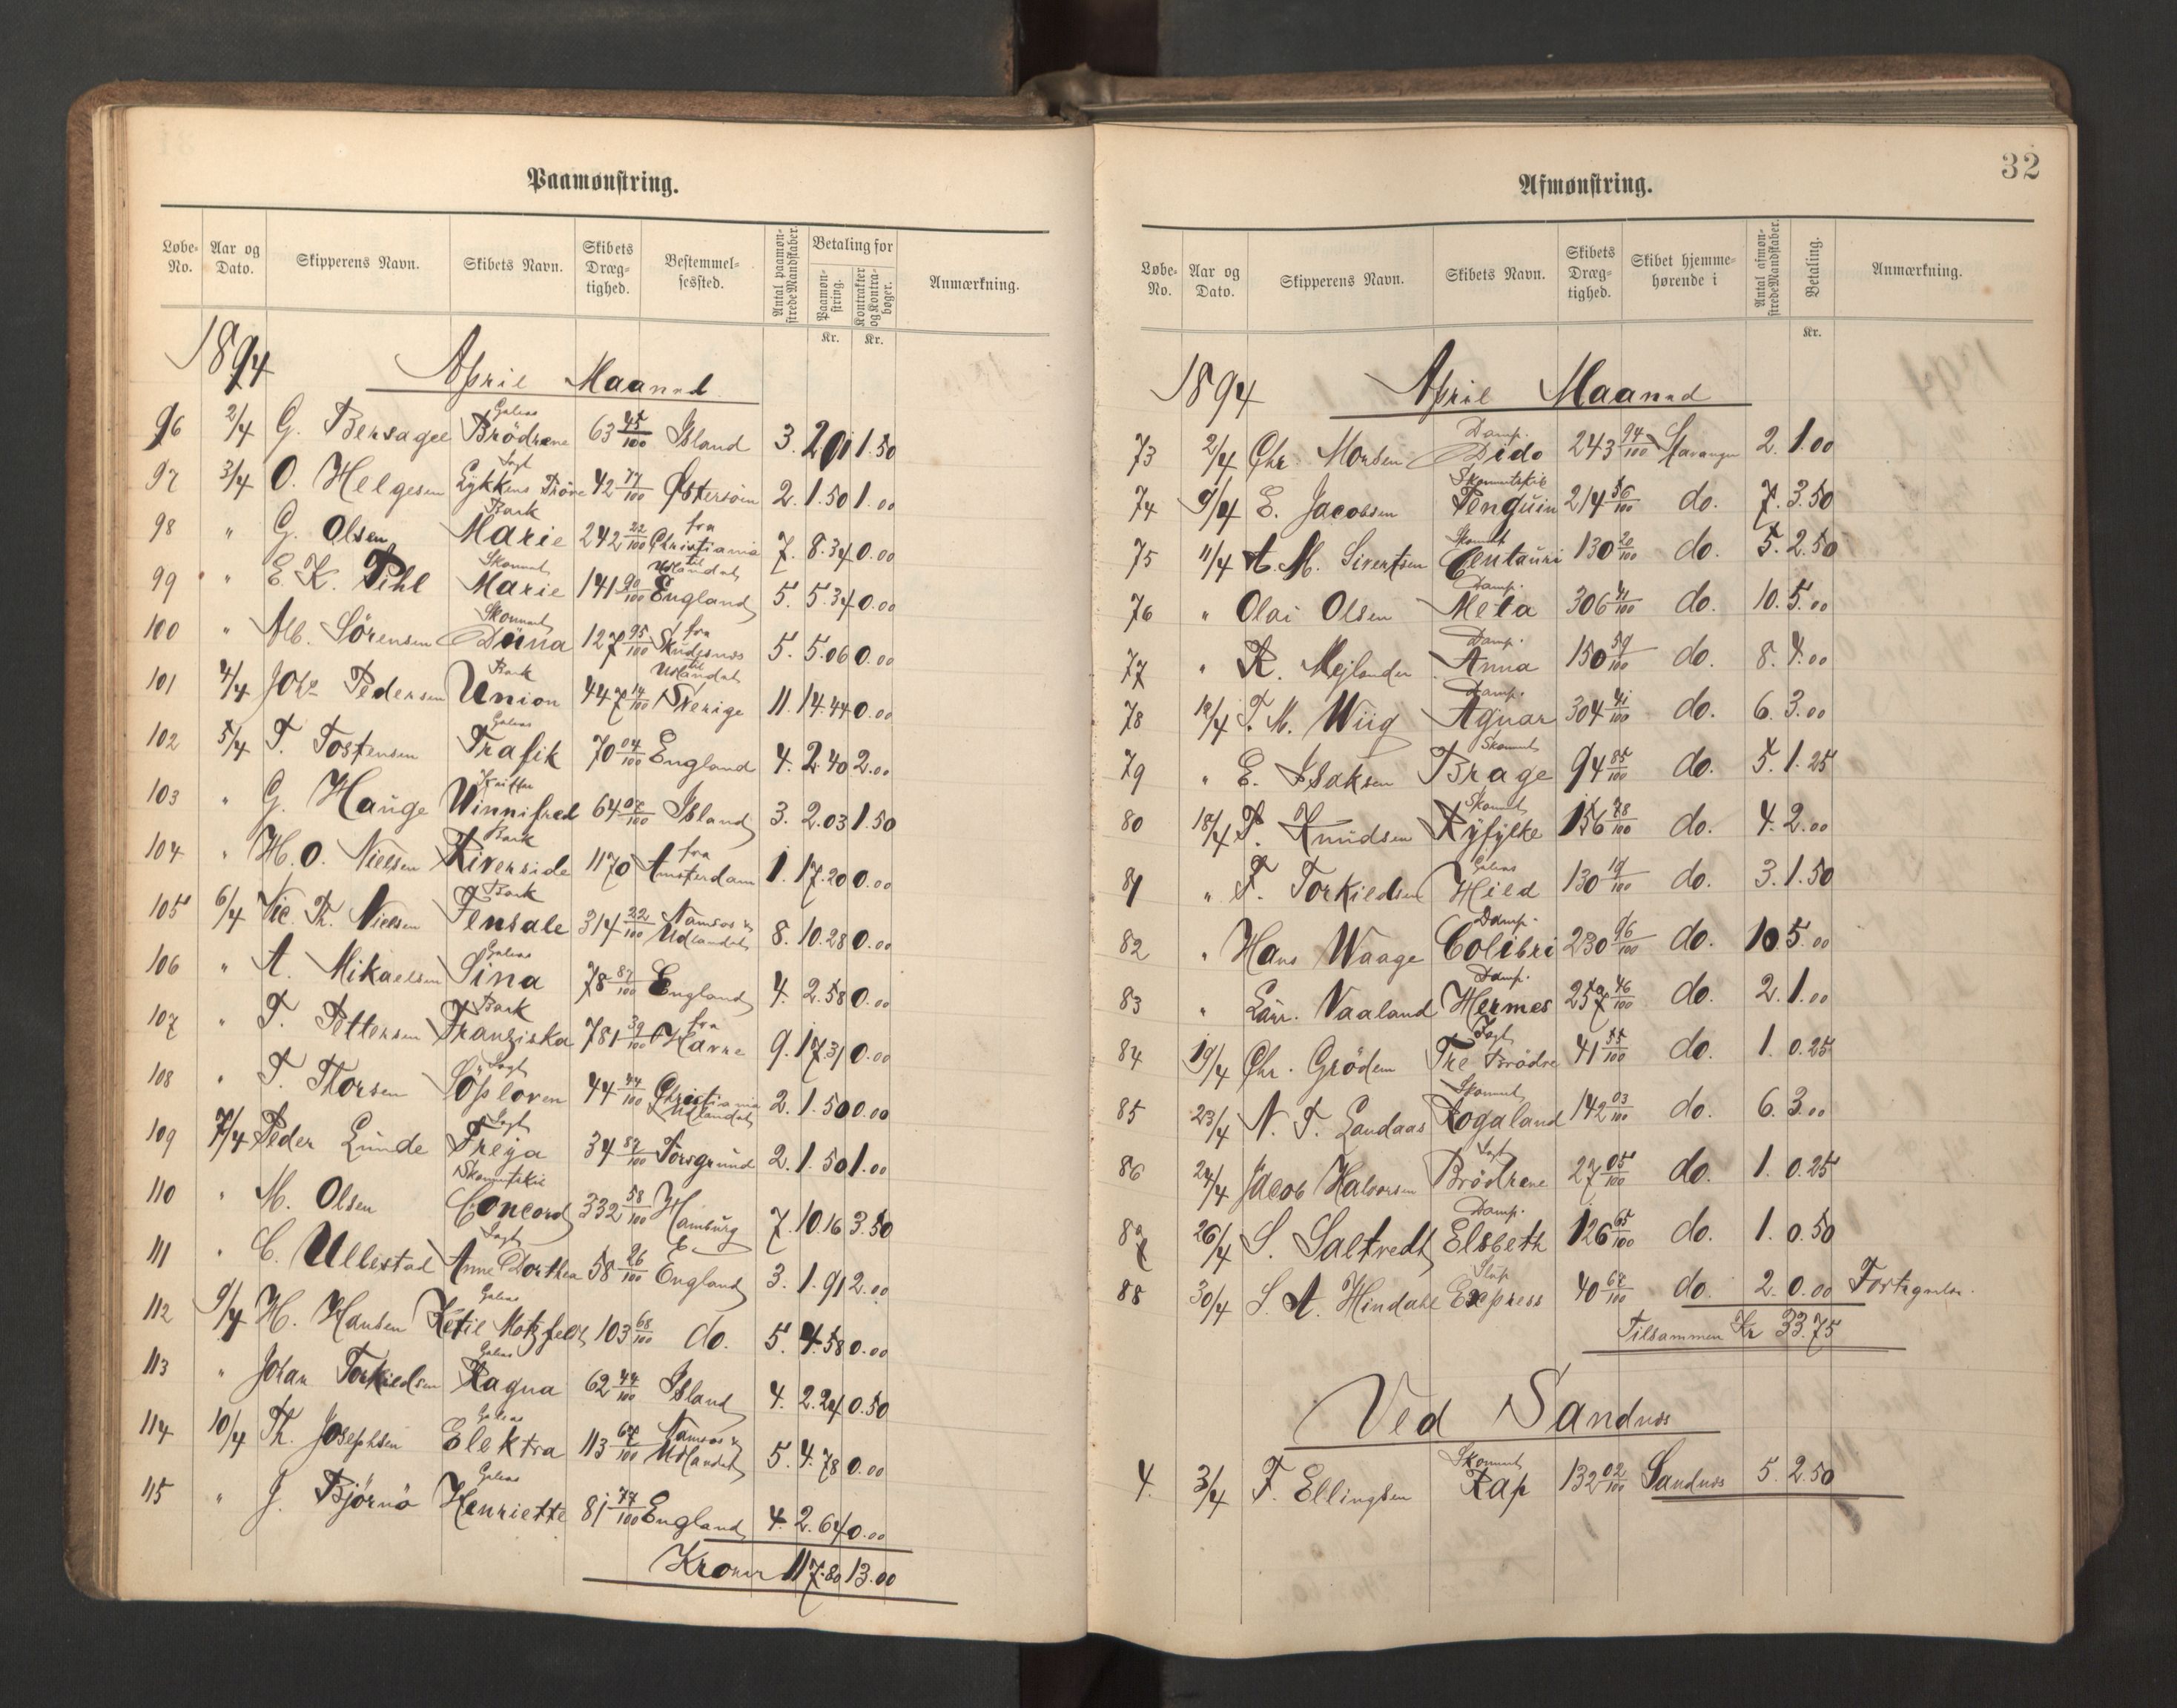 Paamønstring.
Løbe-No. Aar og Dato. Skipperens Navn. Skibets Navn. Skibets Dræg-tighed. Bestemmel-sessted. Antal paamøn-strede Mandskaber. Betaling for Paamøn-string. Kontrakter og Kontra-bøger. Anmærkning.
Kr. Kr.
1894 April Maaned
96 2/4 G. Bersagel Galeas Brödrene 63 45/100 Island 3. 2.01 1.50
97 3/4 O. Helgesen Jagt Lykkens Pröve 42 77/100 Østersöen 2. 1.50 1.00
98 " G. Olsen Bark Marie 242 22/100 fra Christiania til Udlandet 7. 8.34 0.00
99 " E. K. Pihl Skonnert Marie 141 90/100 England 5. 5.34 0.00
100 " Alb. Sörensen Skonnert Düna 127 95/100 fra Skudesnæs til Udlandet 5. 5.06 0.00
101 4/4 Johs Pedersen Bark Union 447 14/100 Sverige 11. 14.44 0.00
102 5/4 T. Tostensen Galeas Trafik 70 04/100 England 4. 2.40 2.00
103 " G. Hauge Winnifred 64 07/100 Island 3. 2.03 1.50
104 " H. O. Nielsen Bark Riverside 1170 fra Amsterdam 1. 17.20 0.00
105 6/4 Nic. Th. Nielsen Bark Fensale 314 22/100 Namsos & Udlandet 8. 10.28 0.00
106 " A. Mikaelsen Galeas Sina 78 87/100 England 4. 2.58 0.00
107 " T. Pettersen Bark Franziska 781 39/100 fra Havre 9. 17.31 0.00
108 " T. Thorsen Jagt Söploven 44 44/100 Christiania & Udlandet 2. 1.50 0.00
109 7/4 Peder Lunde Jagt Freya 34 87/100 Porsgrund 2. 1.50 1.00
110 " M. Olsen Skonnertskib Concord 332 58/100 Hamburg 7. 10.16 3.50
111 " C. Ullestad Jagt Anne Dorthea 58 26/100 England 3. 1.91 2.00
112 9/4 H. Hansen Galeas Ketil Motzfeldt 103 68/100 do. 5. 4.58 0.00
113 " Johan Torkildsen Galeas Ragna 62 44/100 Island 4. 2.24 0.50
114 10/4 Th. Josephsen Galeas Elektra 113 67/100 Namsos & Udlandet 5. 4.78 0.00
115 " J. Björnö Galeas Henriette 81 77/100 England 4. 2.64 0.00
Kroner 117.80 13.00
32
Afmønstring.
Løbe-No. Aar og Dato. Skipperens Navn. Skibets Navn. Skibets Dræg-tighed. Skibet hjemme-hørende i Antal afmøn-strede Mandskaber. Betaling. Anmærkning.
Kr.
1894 April Maaned
73 2/4 Chr. Monsen Damp. Dido 243 94/100 Stavanger 2. 1.00
74 9/4 E. Jacobsen Skonnertskib Penguin 214 56/100 do. 7. 3.50
75 11/4 A. M. Sivertsen Skonnert Centauri 130 20/100 do. 5. 2.50
76 " Olai Olsen Damp. Meta 306 41/100 do. 10. 5.00
77 " R. Mejlander Damp. Anna 150 59/100 do. 8. 4.00
78 12/4 T. M. Wiig Damp. Aguar 304 41/100 do. 6. 3.00
79 " E. Isaksen Skonnert Brage 94 85/100 do. 5. 1.25
80 18/4 T. Knudsen Skonnert Ryfylke 156 78/100 do. 4. 2.00
81 " T. Torkildsen Galeas Hild 130 19/100 do. 3. 1.50
82 " Hans Waage Damp. Colibri 230 96/100 do. 10 5.00
83 " Laur. Vaaland Damp. Hermes 257 46/100 do. 2. 1.00
84 19/4 Chr. Grödem Jagt Tre Brödre 41 55/100 do. 1. 0.25
85 23/4 N. T. Landaas Skonnert Rogaland 142 03/100 do. 6. 3.00
86 24/4 Jacob Halvorsen Jagt Brödrene 27 05/100 do. 1. 0.25
87 26/4 S. Saltvedt Damp. Elsbeth 126 65/100 do. 1. 0.50
88 30/4 S. A. Hindahl Slup Express 40 67/100 do. 2. 0.00
Tilsammen Kr 33.75
Ved Sandnæs
4. 3/4 F. Ellingsen Skonnert Rap 132 02/100 Sandnæs 5. 2.50